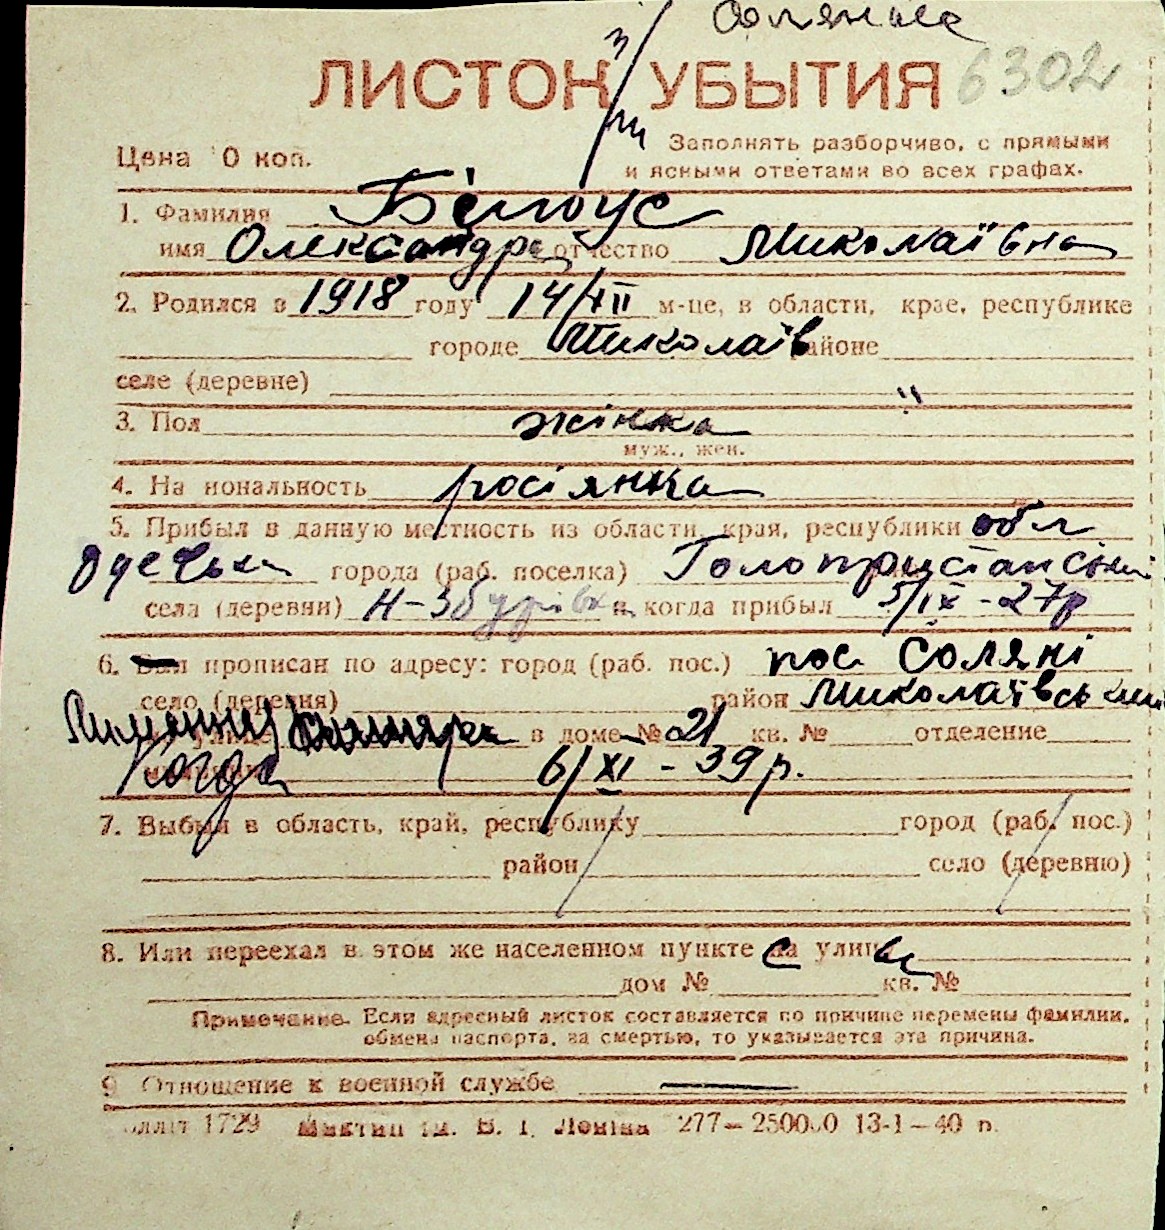 Соляные
ЛИСТОК УБЫТИЯ 6302
Цена 0 коп. Заполнять разборчиво, с прямыми
и ясными ответами во всех графах.
1. Фамилия Бєлоус
имя Олександра отчество Миколаївна
2. Родился в 1918 году 14/XII м-це, в области, крае, республике
городе Миколаїв районе
селе (деревне)
3. Пол жінка
муж., жен.
4. Национальность росіянка
5. Прибыл в данную местность из области, края, республики обл
Одеська города (раб. поселка) Голопристанський
села (деревни) Н-Збурівка когда прибыл 5/IX-27р
6. Был прописан по адресу: город (раб. пос.) пос Соляні
село (деревня) район Миколаївський
в доме № 21 кв. № отделение
Когда 6/XI - 39 р.
7. Выбыл в область, край, республику город (раб. пос.)
район село (деревню)
8. Или переехал в этом же населенном пункте с улицы
дом № кв. №
Примечание. Если адресный листок составляется по причине перемены фамилии,
обмена паспорта, за смертью, то указывается эта причина.
9 Отношение к военной службе —
літ 1729 ім. В. І. Леніна 277—250000 13-1—40 п.